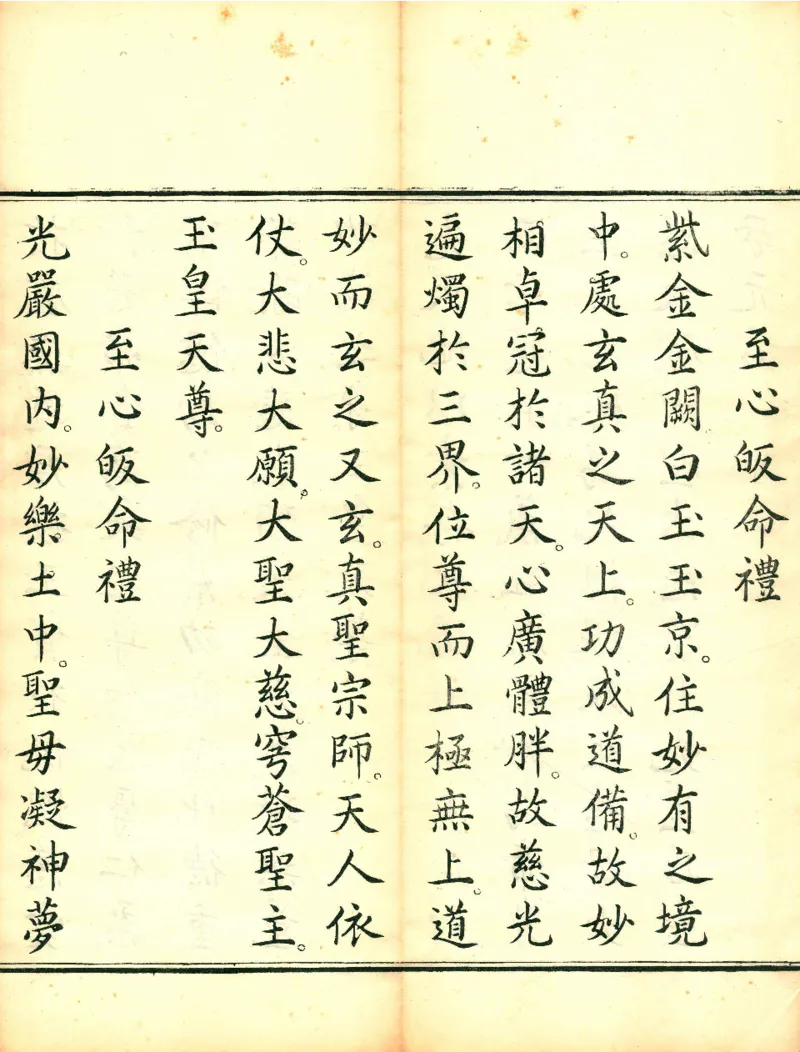 至心皈命禮
紫金金闕白玉玉京。住妙有之境
中。處玄真之天上。功成道備。故妙
相卓冠於諸天。心廣體胖。故慈光
遍燭於三界。位尊而上極無上。道
妙而玄之又玄。真聖宗師。天人依
仗。大悲大願。大聖大慈。穹蒼聖主。
玉皇天尊。
至心皈命禮
光嚴國內。妙樂土中。聖母凝神夢